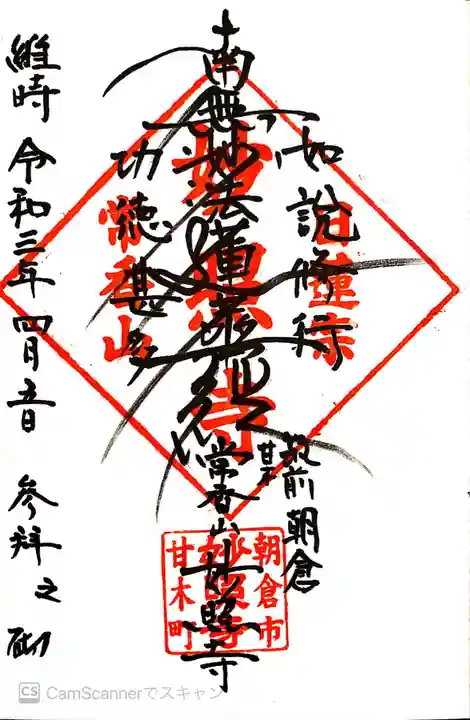 如説修行
日蓮宗
筑前朝倉
甘木
南無妙法蓮華経
妙照寺
常香山妙照寺
功徳甚多
常香山
維時 令和三年 四月五日 参拝之砌
朝倉市
妙照寺
甘木町
CS CamScannerでスキャン